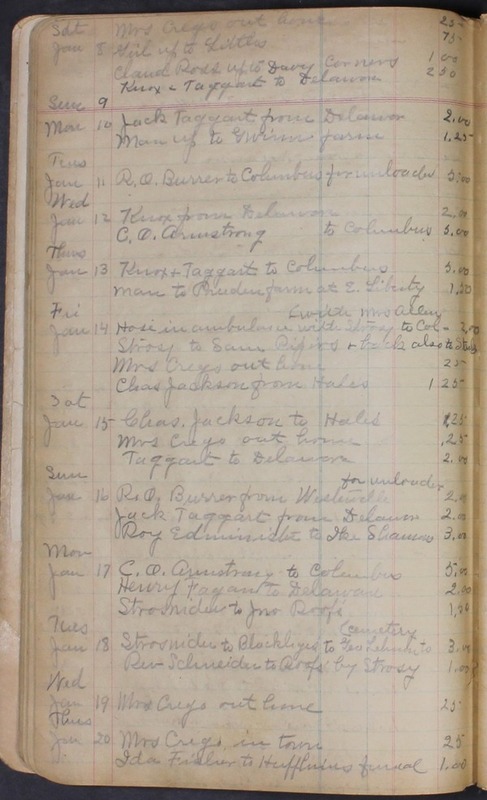 Sat Mrs Creys out home 25
Jan 8 Girl up to Littles 75
Claud Ross up to Davy Corners 1.00
Knox & Taggart to Delawon 2 50
Sun 9
Mon 10 Jack Taggart from Delawon 2.00
Man up to farm 1.25
Tues
Jan 11 R.O. Burrer to Columbus for unloader 5.00
Wed
Jan 12 Knox from Delawon 2.00
C.O. Armstrong to Columbus 5.00
Thurs
Jan 13 Knox + Taggart to Columbus 5.00
Man to farm at E. Liberty 1.50
Fri with Mrs Alley
Jan 14 in ambulance with Strosy to Col - 2.00
Strosy to Sam + back also to
Mrs Creys out home 25
Chas Jackson from Hales 1 25
Sat
Jan 15 Chas. Jackson to Hales 1.25
Mrs Creys out home .25
Taggart to Delawon 2.00
Sun for unloader
Jan 16 R.O. Burrer from Westerville 2.0
Jack Taggart from Delawon 2.00
Roy to Ike 3.00
Mon
Jan 17 C.O. Armstrong to Columbus 5.00
Henry Taggart to Delaware 2.00
Strosnider to Jno Roofs 1.00
Tues Cemetery
Jan 18 Strosnider to to to 3.00
Rev Schneider to Roofs by Strosy 1.00
Wed
Jan 19 Mrs Creys out home 25
Thurs
Jan 20 Mrs Creys in town 25
Ida Fisher to Huffhines funeral 1.00